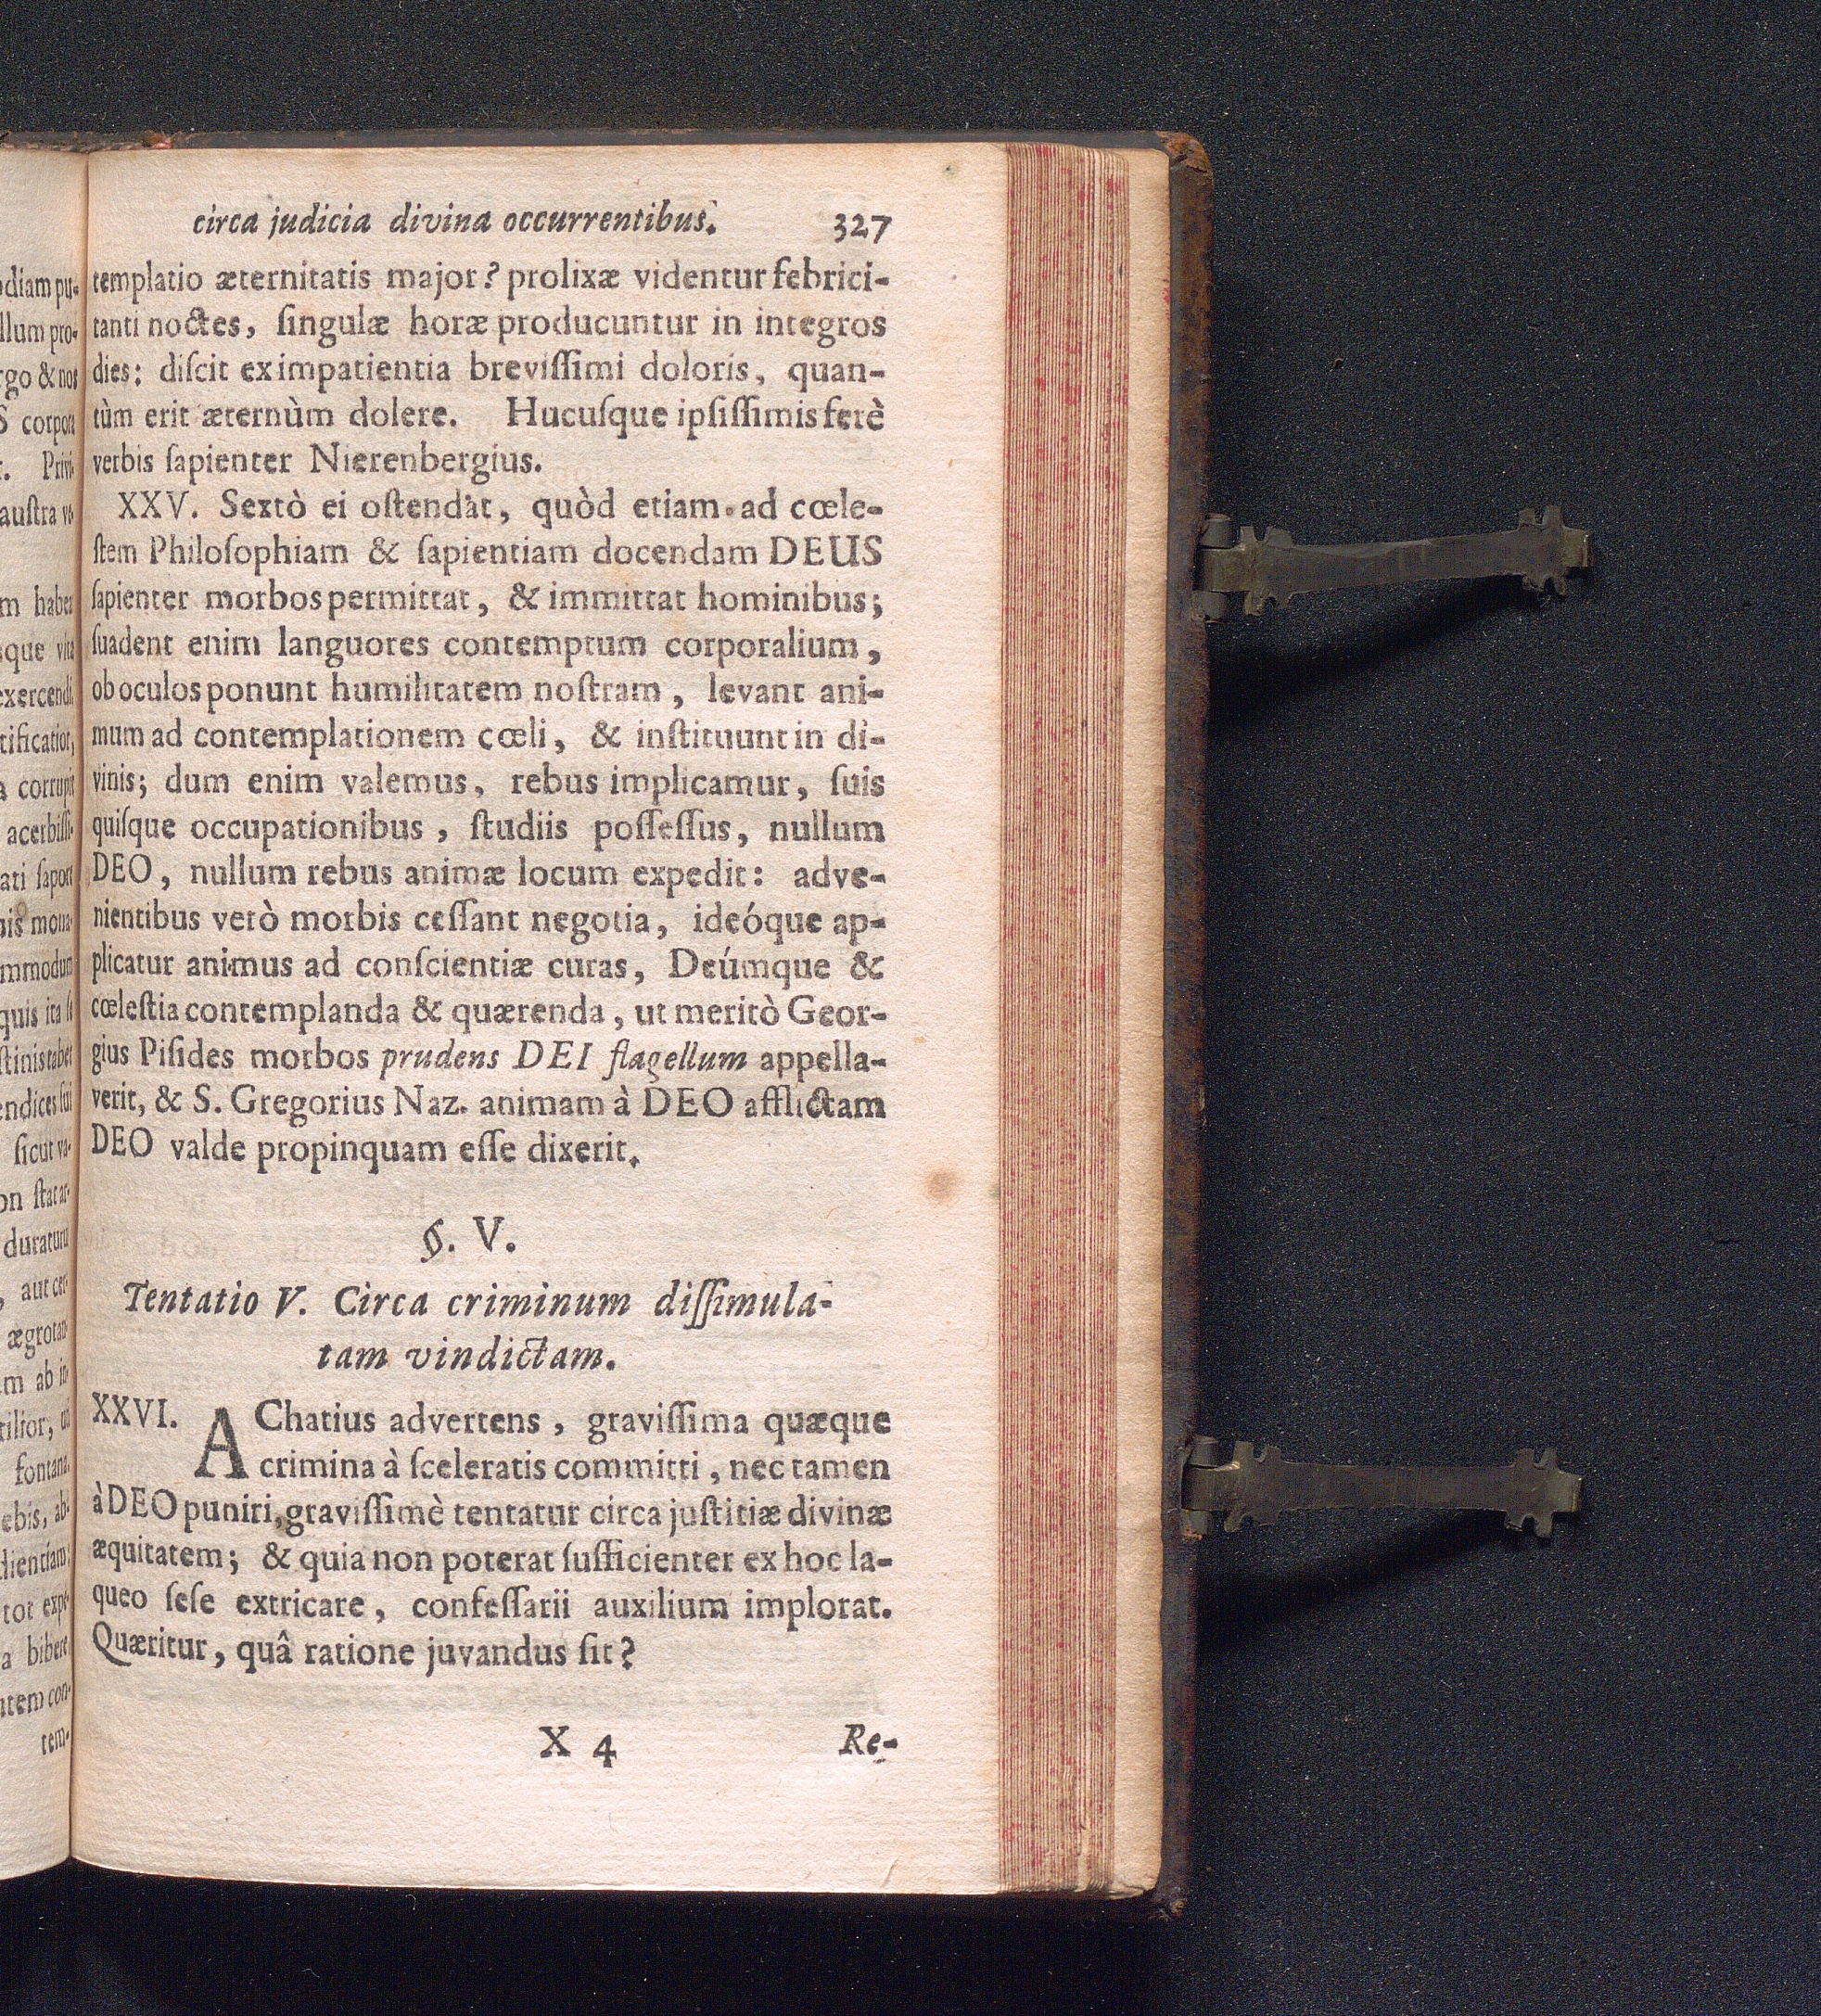 circa judicia divina occurrentibus. 327
templatio æternitatis major? prolixæ videntur febrici-
tanti noctes, ſingulæ horæ producuntur in integros
dies; diſcit ex impatientia breviſſimi doloris, quan-
tùm erit æternùm dolere. Hucuſque ipſiſſimis ferè
verbis ſapienter Nierenbergius.
XXV. Sextò ei oſtendat, quòd etiam ad cœle-
ſtem Philoſophiam & ſapientiam docendam DEUS
ſapienter morbos permittat, & immittat hominibus;
ſuadent enim languores contemptum corporalium,
ob oculos ponunt humilitatem noſtram, levant ani-
mum ad contemplationem cœli, & inſtituunt in di-
vinis; dum enim valemus, rebus implicamur, ſuis
quiſque occupationibus, ſtudiis poſſeſſus, nullum
DEO, nullum rebus animæ locum expedit: adve-
nientibus verò morbis ceſſant negotia, ideóque ap-
plicatur animus ad conſcientiæ curas, Deúmque &
cœleſtia contemplanda & quærenda, ut meritò Geor-
gius Piſides morbos prudens DEI flagellum appella-
verit, & S. Gregorius Naz. animam à DEO afflictam
DEO valde propinquam eſſe dixerit.
§. V.
Tentatio V. Circa criminum diſſimula-
tam vindictam.
XXVI. AChatius advertens, graviſſima quæque
crimina à ſceleratis committi, nec tamen
à DEO puniri, graviſſimè tentatur circa juſtitiæ divinæ
æquitatem; & quia non poterat ſufficienter ex hoc la-
queo ſeſe extricare, confeſſarii auxilium implorat.
Quæritur, quâ ratione juvandus ſit?
X 4 Re-